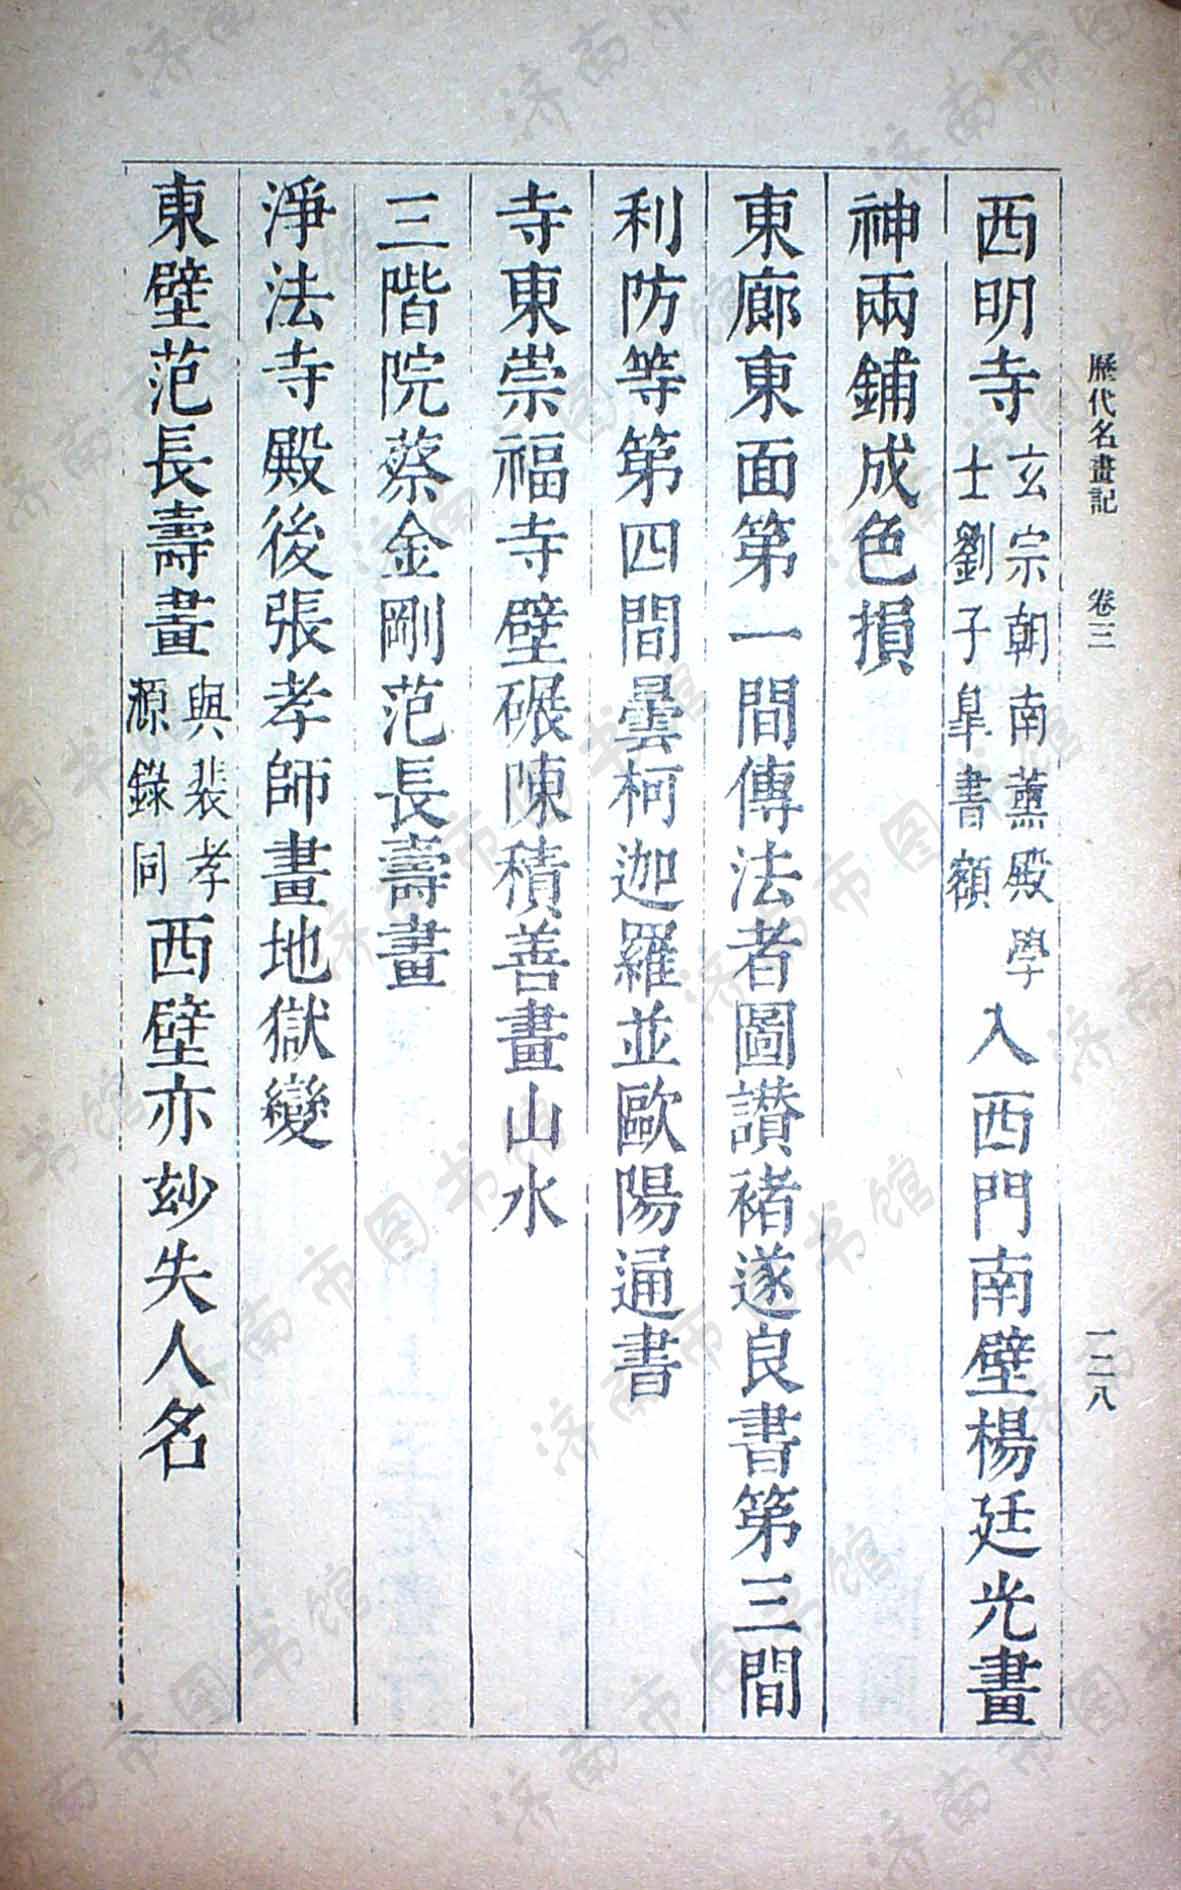 歷代名畫記　卷三　一二八
西明寺玄宗朝南薰殿學士劉子皐書額入西門南壁楊廷光畫
神兩鋪成色損
東廊東面第一間傳法者圖讃褚遂良書第三間
利防等第四間曇柯迦羅並歐陽通書
寺東崇福寺壁碾陳積善畫山水
三階院蔡金剛范長壽畫
淨法寺殿後張孝師畫地獄變
東壁范長壽畫與裴孝源錄同西壁亦玅失人名
济南市图书馆